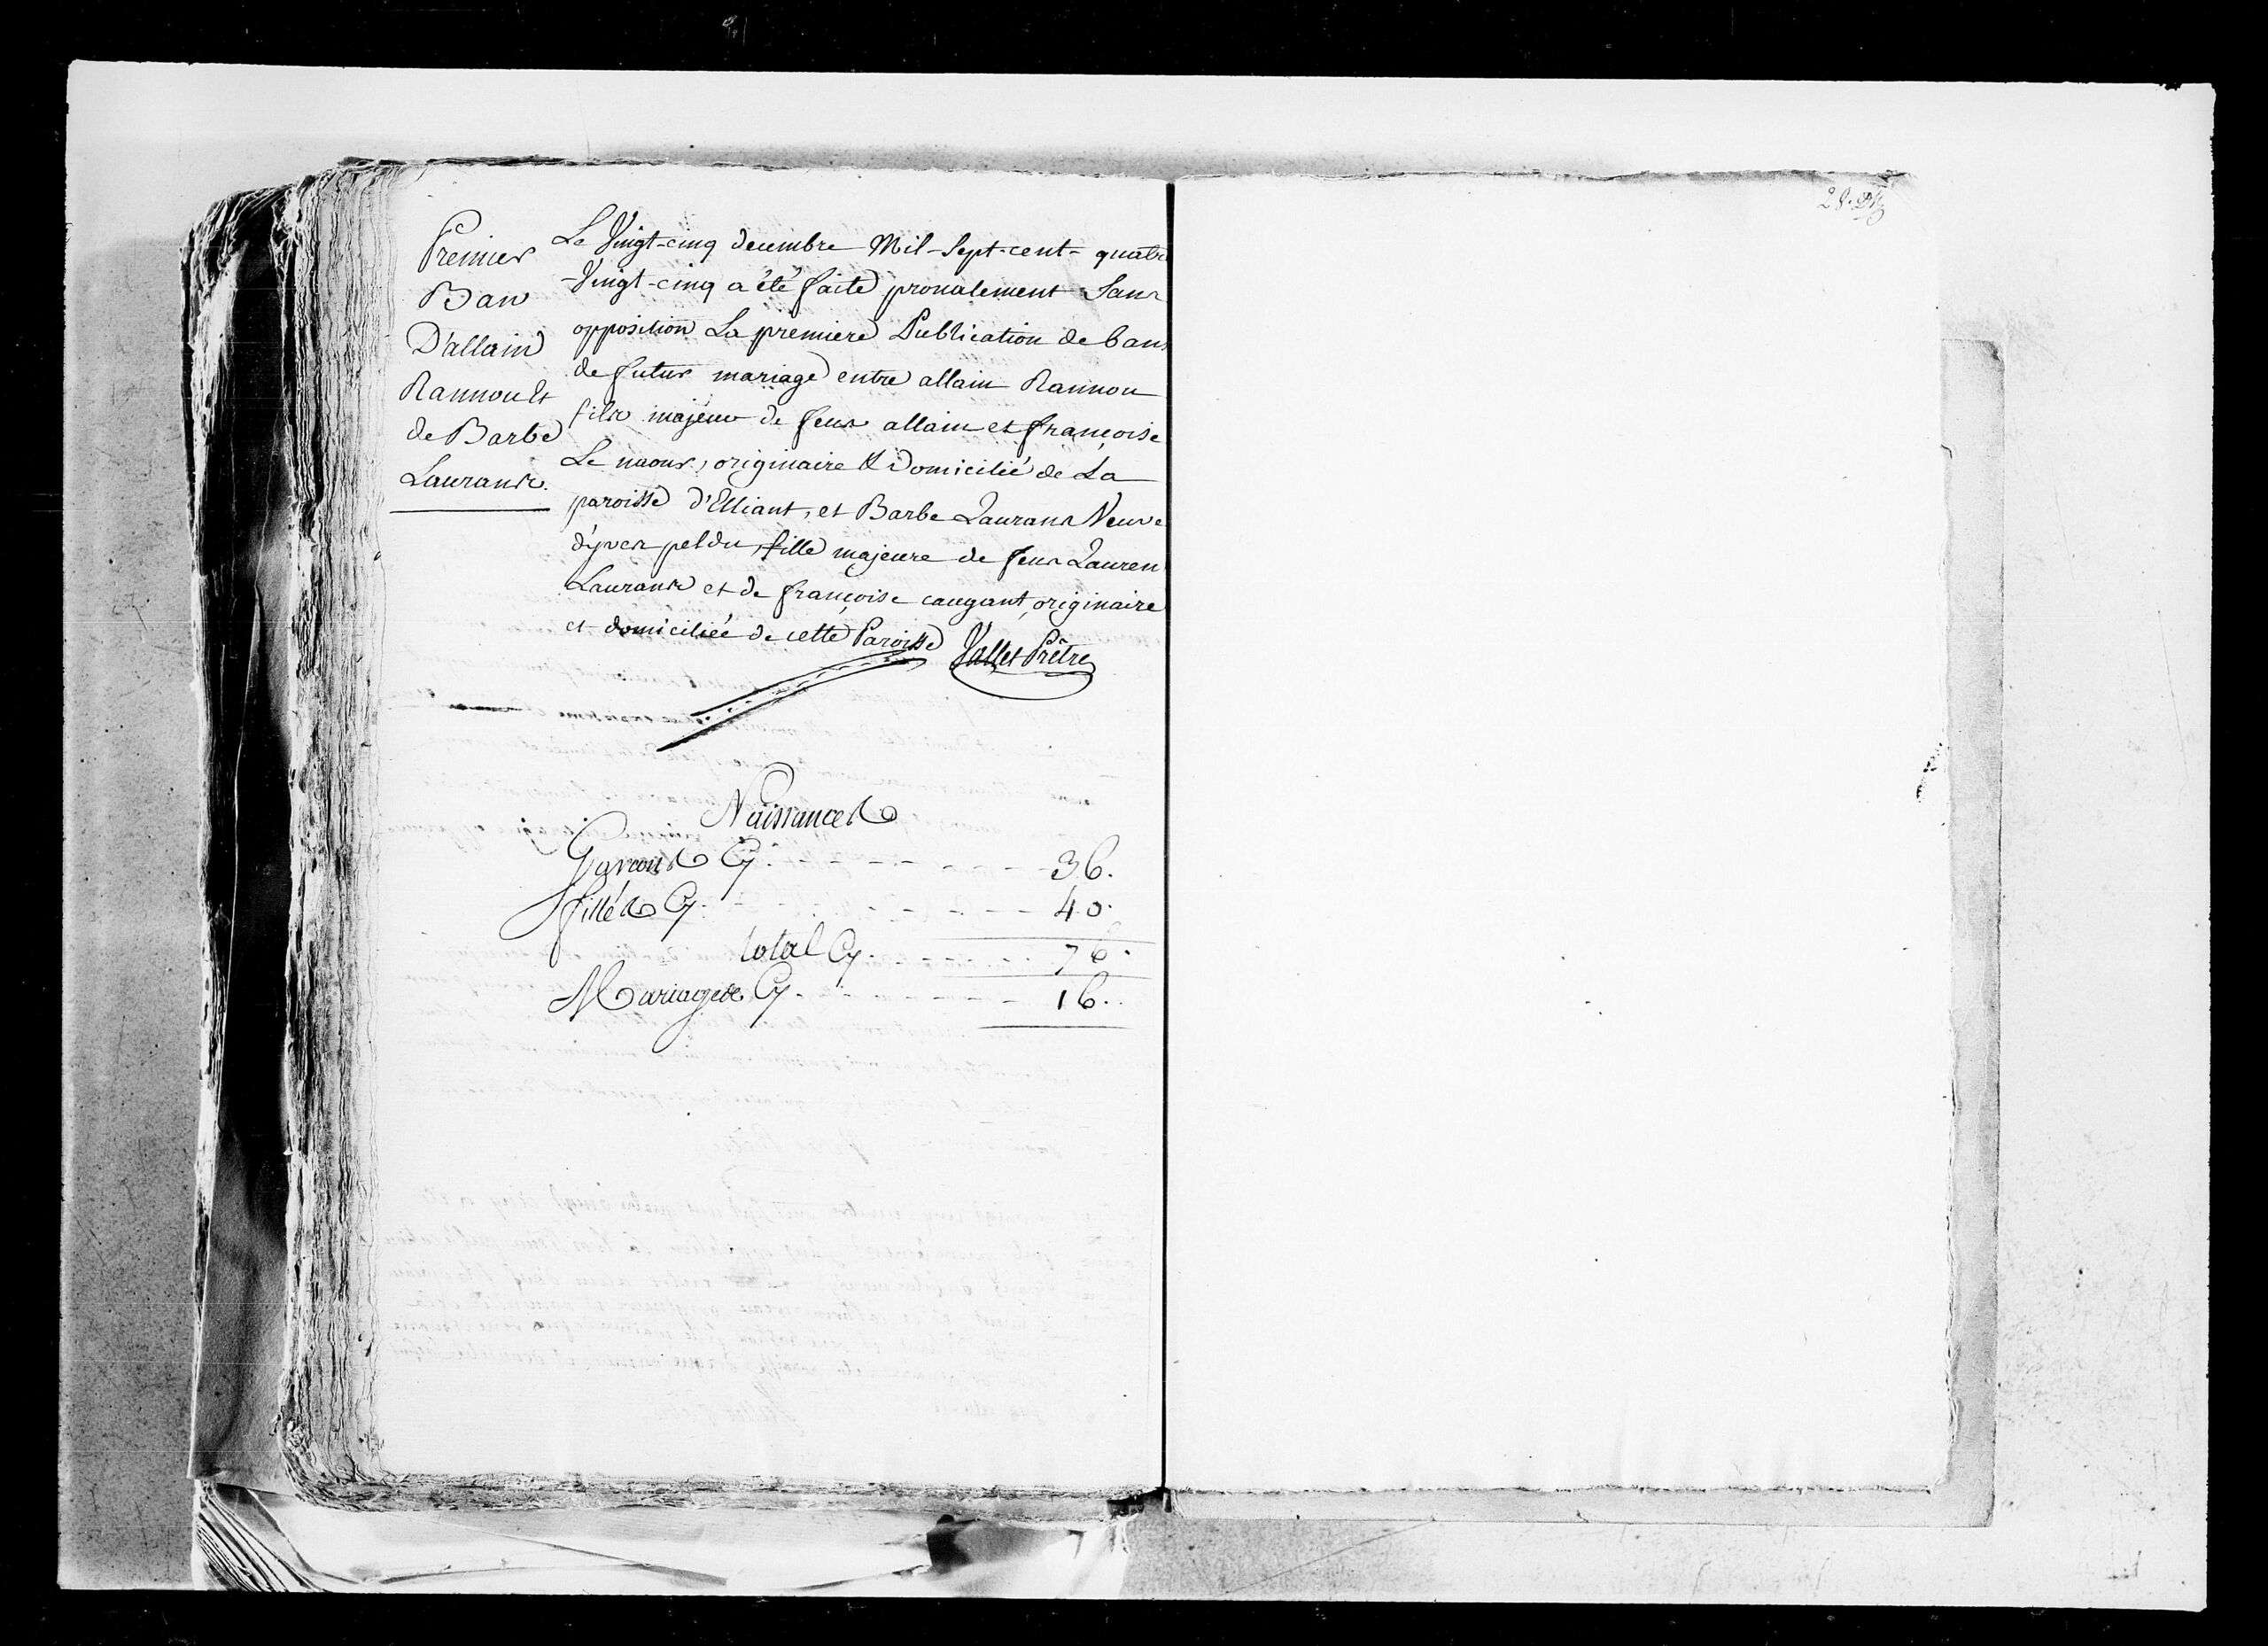 28.
Premier
Ban
D'allain
Rannou et
de Barbe
Laurans.
Le Vingt-cinq decembre Mil-Sept-cent-quatre
-Vingt-cinq a été faite pronalement Sans
opposition La premiere Publication de bans
de futur mariage entre allain Rannou
fils majeur de feus allain et françoise
Le naour, originaire & Domicilié de La
paroisse d'Elliant, et Barbe Laurans Veuve
d'yves peldu, fille majeure de feus Lauren
Laurans et de françoise caugant, originaire
et domiciliée de cette Paroisse Vallet Prêtre
Naissances
Garcons Cy. 36.
filles Cy. 40.
total Cy. 76.
Mariages Cy. 16.